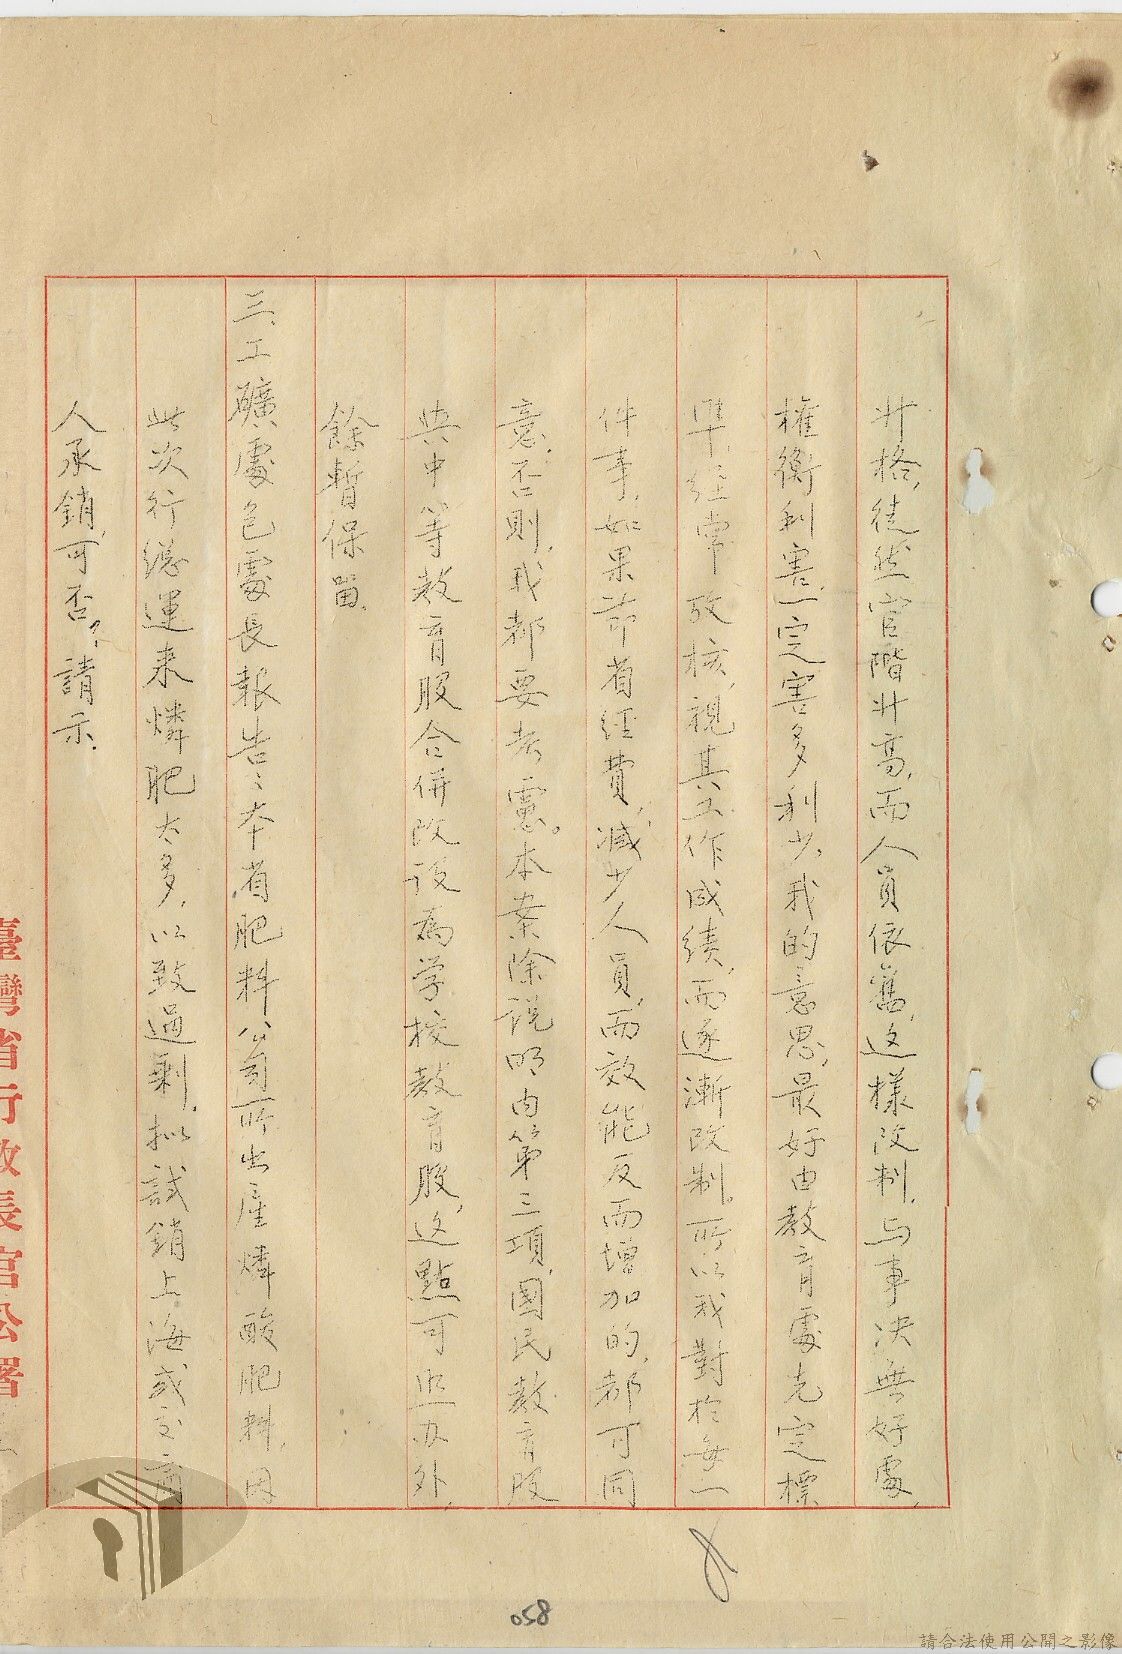 升格，徒然官階升高，而人員依舊，这樣改制，与事決無好處，
權衡利害，一定害多利少，我的意思，最好由教育處先定標
準，經常攷核，視其工作成績，而逐漸改制。所以我對於每一
件事，如果節省經費，減少人員，而效能反而增加的，都可同
意，否則，我都要考慮。本案除説明内第三項，國民教育股
與中等教育股合併改设為学校教育股，这點可照办外，
餘暫保留。
三、工礦處包處長報告：本省肥料公司所出產燐酸肥料，因
此次行總運来燐肥太多，以致過剩，拟試銷上海或交商
人承銷，可否，請示。
臺灣省行政長官公署
058
請合法使用公開之影像